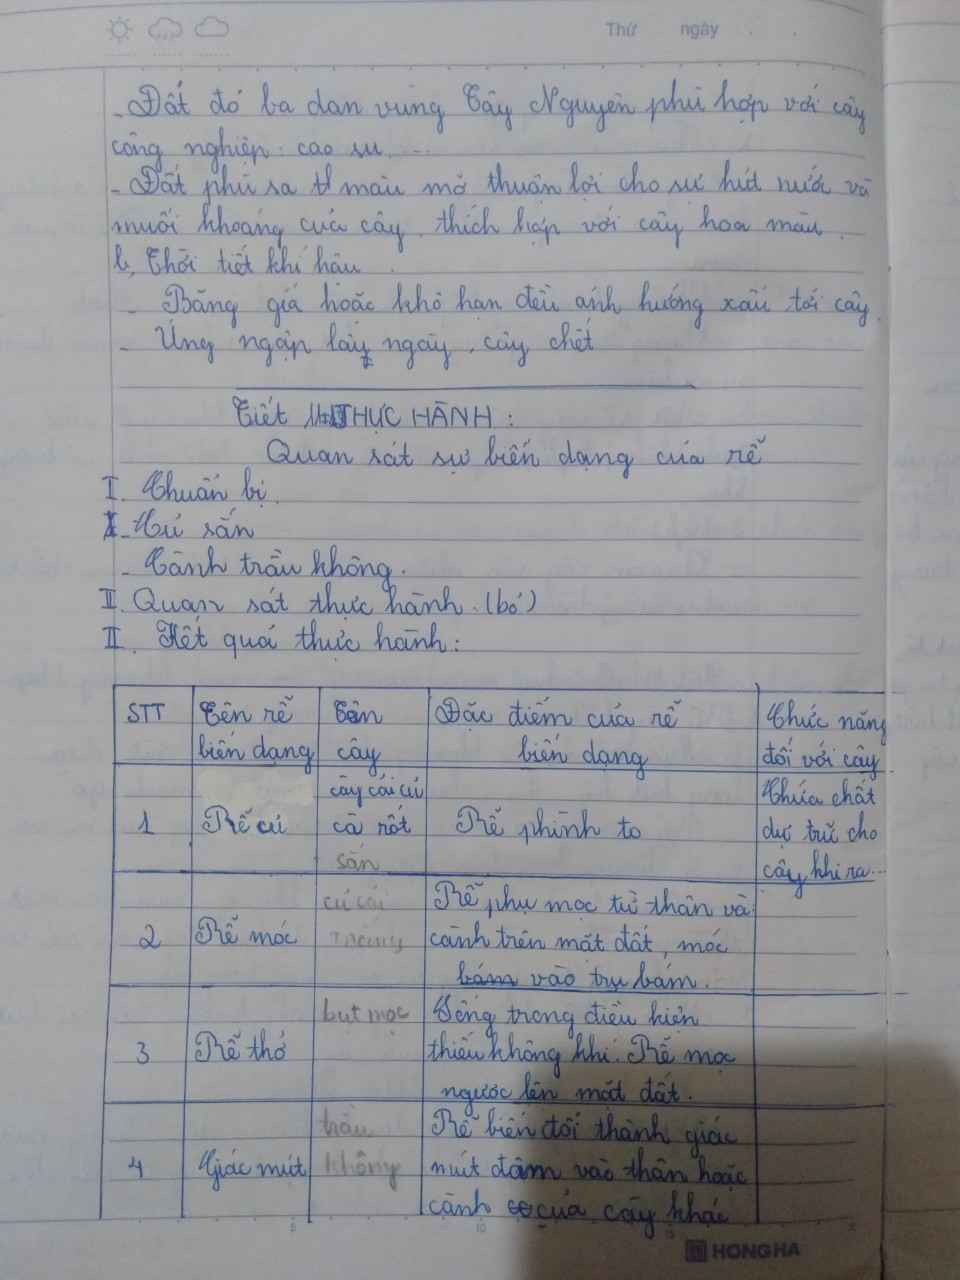 Thứ ngày
- Đất đỏ ba dan vùng Tây Nguyên phù hợp với cây
công nghiệp: cao su ...
- Đất phù sa màu mỡ thuận lợi cho sự hút nước và
muối khoáng của cây, thích hợp với cây hoa màu.
b, Thời tiết khí hậu.
- Băng giá hoặc khô hạn đều ảnh hưởng xấu tới cây.
- Úng ngập lâu ngày, cây chết
Tiết THỰC HÀNH:
Quan sát sự biến dạng của rễ
I. Chuẩn bị.
- Củ sắn
- Cành trầu không.
II. Quan sát thực hành. (bỏ)
II. Kết quả thực hành:
STT Tên rễ biến dạng Tên cây Đặc điểm của rễ biến dạng Chức năng đối với cây
1 Rễ củ cây cải củ cà rốt sắn Rễ phình to Chứa chất dự trữ cho cây khi ra...
2 Rễ móc củ cải Rễ phụ mọc từ thân và cành trên mặt đất, móc bám vào trụ bám.
3 Rễ thở bụt mọc Sống trong điều kiện thiếu không khí. Rễ mọc ngược lên mặt đất.
4 Giác mút trầu không Rễ biến đổi thành giác mút đâm vào thân hoặc cành của cây khác
HONG HA